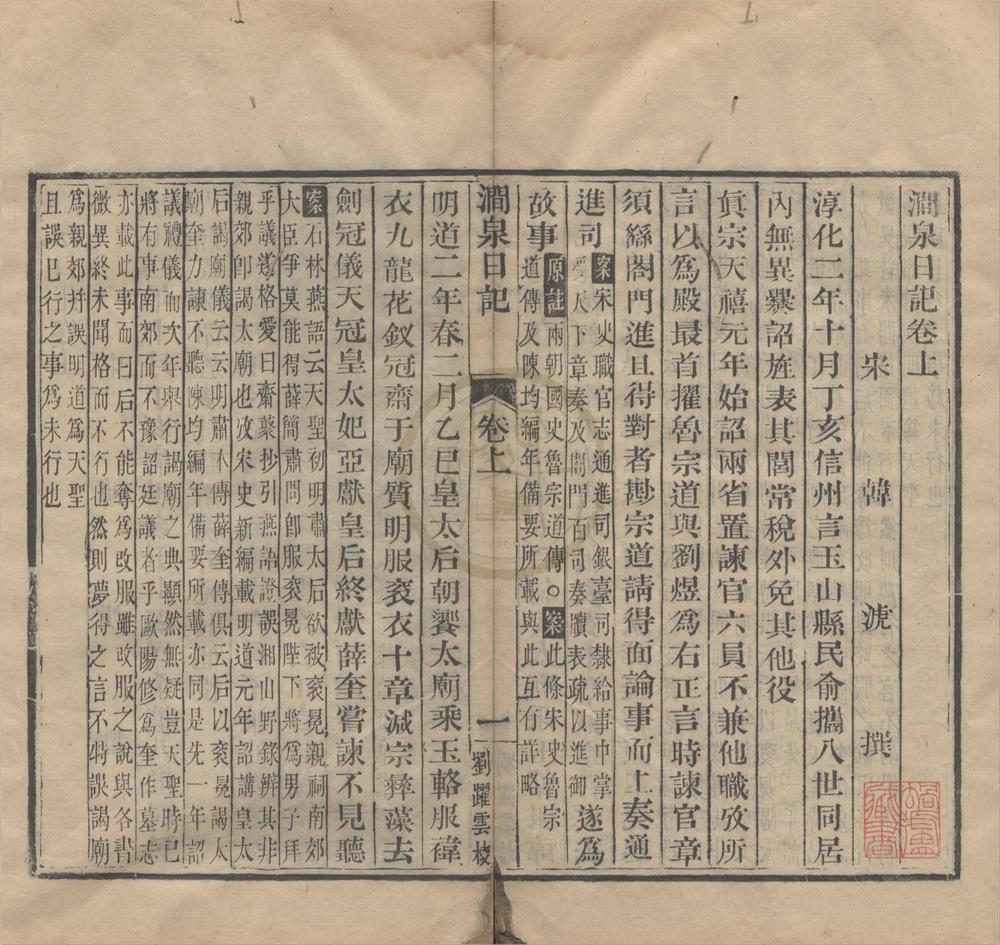 澗泉日記卷上
宋 韓 淲 撰
淳化二年十月丁亥信州言玉山縣民俞擕八世同居
內無異爨詔旌表其閭常稅外免其他役
眞宗天禧元年始詔兩省置諫官六員不兼他職攷所
言以爲殿最首擢魯宗道與劉煜爲右正言時諫官章
須繇閤門進且得對者尠宗道請得面論事而上奏通
進司案宋史職官志通進司銀臺司隸給事中掌
受天下章奏及閤門百司奏牘表疏以進御遂爲
故事原註兩朝國史魯宗道傳○案此條宋史魯宗
道傳及陳均編年備要所載與此互有詳略
澗泉日記 卷上 一 劉躍雲校
明道二年春二月乙巳皇太后朝饗太廟乘玉輅服褘
衣九龍花釵冠齋于廟質明服袞衣十章減宗彝藻去
劍冠儀天冠皇太妃亞獻皇后終獻薛奎嘗諫不見聽
案石林燕語云天聖初明肅太后欲被袞冕親祠南郊
大臣爭莫能得薛簡肅問卽服袞冕陛下將爲男子拜
乎議遂格愛日齋藂抄引燕語證誤湘山野錄辨其非
親郊卽謁太廟也攷宋史新編載明道元年詔講皇太
后謁廟儀云云明肅本傳薛奎傳俱云后以袞冕謁太
廟奎力諫不聽陳均編年備要所載亦同是先一年詔
議禮儀而次年舉行謁廟之典顯然無疑豈天聖時已
將有事南郊而不豫詔廷議者乎歐陽修爲奎作墓志
亦載此事而曰后不能奪爲改服雖改服之說與各書
微異終未聞格而不行也然則夢得之言不特誤謁廟
爲親郊并誤明道爲天聖
且誤已行之事爲未行也